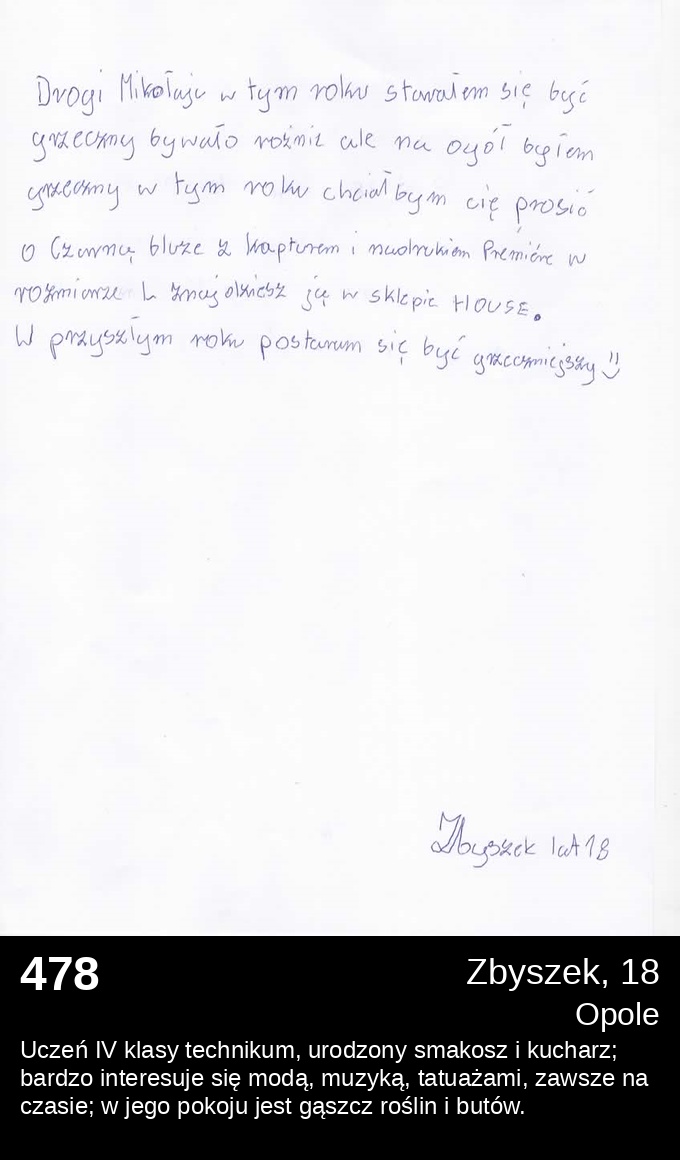 Drogi Mikołaju w tym roku starałem się być
grzeczny bywało rożnie ale na ogół byłem
grzeczny w tym roku chciałbym cię prosić
o Czarną bluze z kapturem i nadrukiem Premiére w
rozmiarze L znajdziesz ją w sklepie HOUSE.
W przyszłym roku postaram się być grzeczniejszy
Zbyszek lat 18
478
Zbyszek, 18
Opole
Uczeń IV klasy technikum, urodzony smakosz i kucharz;
bardzo interesuje się modą, muzyką, tatuażami, zawsze na
czasie; w jego pokoju jest gąszcz roślin i butów.